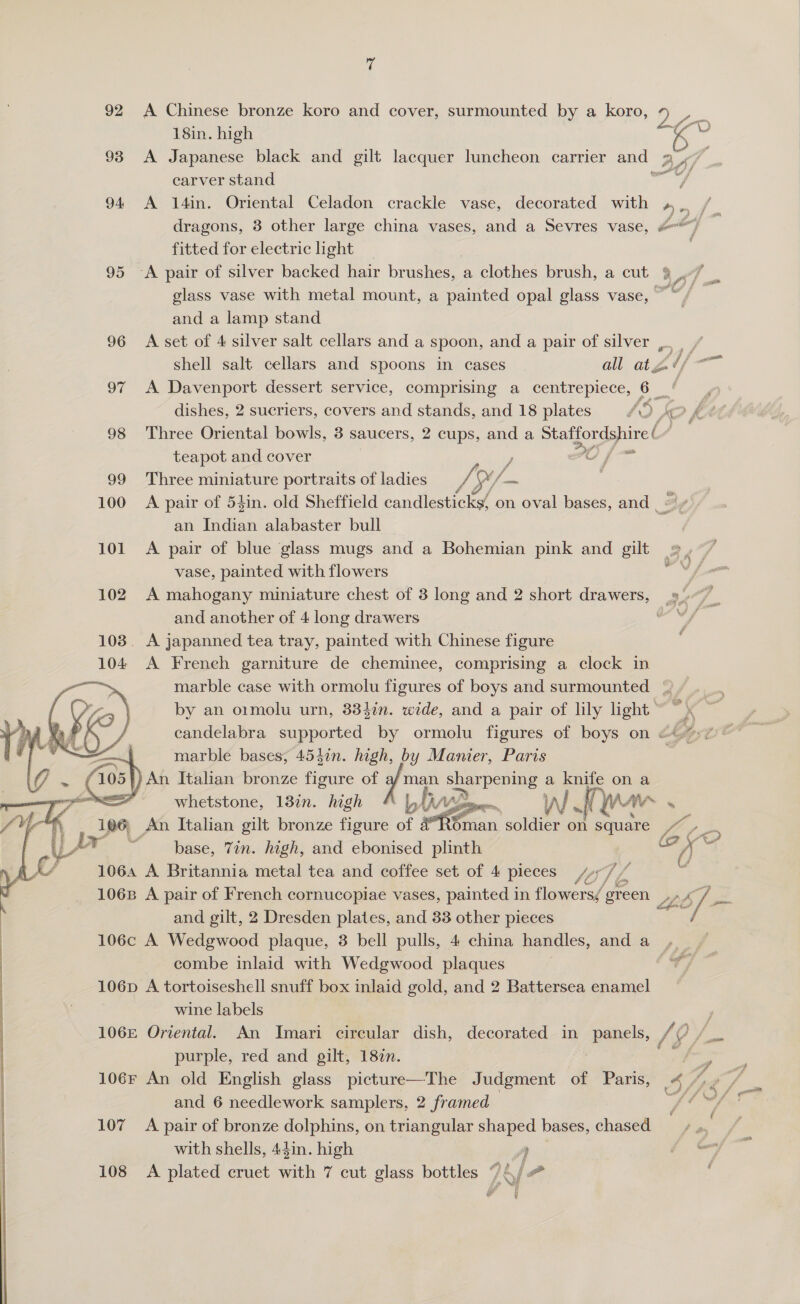 7
92 A Chinese bronze koro and cover, surmounted by a koro,
18in. high
93 A Japanese black and gilt lacquer luncheon carrier and
carver stand
94 A 14in. Oriental Celadon crackle vase, decorated with
dragons, 3 other large china vases, and a Sevres vase,
fitted for electric light
95 A pair of silver backed hair brushes, a clothes brush, a cut
glass vase with metal mount, a painted opal glass vase,
and a lamp stand
96 A set of 4 silver salt cellars and a spoon, and a pair of silver
shell salt cellars and spoons in cases all at
97 A Davenport dessert service, comprising a centrepiece, 6
dishes, 2 sucriers, covers and stands, and 18 plates
98 Three Oriental bowls, 3 saucers, 2 cups, and a Staffordshire
teapot and cover
99 Three miniature portraits of ladies
100 A pair of 5½in. old Sheffield candlesticks, on oval bases, and
an Indian alabaster bull
101 A pair of blue glass mugs and a Bohemian pink and gilt
vase, painted with flowers
102 A mahogany miniature chest of 3 long and 2 short drawers,
and another of 4 long drawers
103 A japanned tea tray, painted with Chinese figure
104 A French garniture de cheminee, comprising a clock in
marble case with ormolu figures of boys and surmounted
by an ormolu urn, 33½in. wide, and a pair of lily light
candelabra supported by ormolu figures of boys on
marble bases, 45½in. high, by Manier, Paris
105 An Italian bronze figure of a man sharpening a knife on a
whetstone, 13in. high
106 An Italian gilt bronze figure of a Roman soldier on square
base, 7in. high, and ebonised plinth
106A A Britannia metal tea and coffee set of 4 pieces
106B A pair of French cornucopiae vases, painted in flowers, green
and gilt, 2 Dresden plates, and 33 other pieces
106C A Wedgwood plaque, 3 bell pulls, 4 china handles, and a
combe inlaid with Wedgwood plaques
106D A tortoiseshell snuff box inlaid gold, and 2 Battersea enamel
wine labels
106E Oriental. An Imari circular dish, decorated in panels,
purple, red and gilt, 18in.
106F An old English glass picture—The Judgment of Paris,
and 6 needlework samplers, 2 framed
107 A pair of bronze dolphins, on triangular shaped bases, chased
with shells, 4½in. high
108 A plated cruet with 7 cut glass bottles